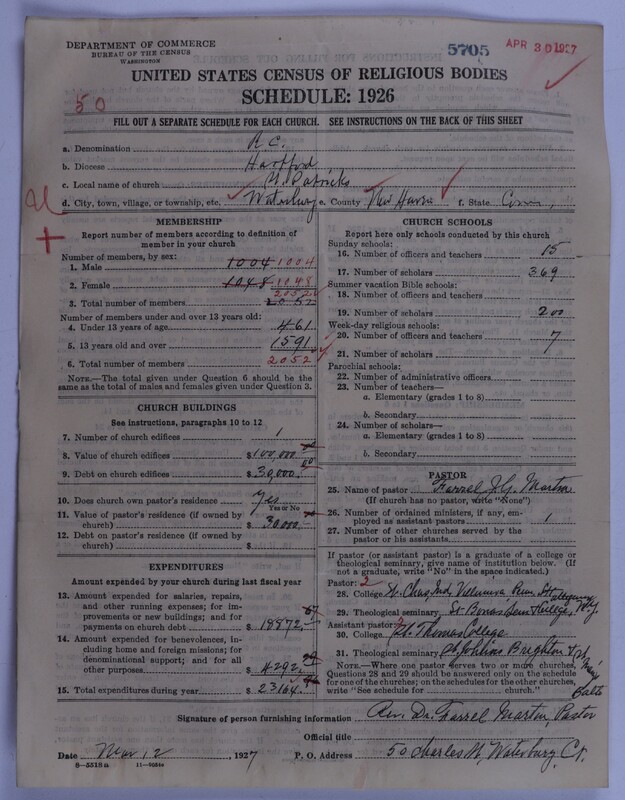 DEPARTMENT OF COMMERCE
BUREAU OF THE CENSUS
WASHINGTON
5705
APR 30 1927
UNITED STATES CENSUS OF RELIGIOUS BODIES
SCHEDULE: 1926
50
FILL OUT A SEPARATE SCHEDULE FOR EACH CHURCH. SEE INSTRUCTIONS ON THE BACK OF THIS SHEET
a. Denomination R.C.
b. Diocese Hartford
c. Local name of church St Patricks
d. City, town, village, or township, etc. Waterbury e. County New Haven f. State Conn.
MEMBERSHIP
Report number of members according to definition of
member in your church
Number of members, by sex:
1. Male 1004 1004
2. Female 1048 1048
3. Total number of members 2052 2052
Number of members under and over 13 years old:
4. Under 13 years of age 461
5. 13 years old and over 1591
6. Total number of members 2052
NOTE.—The total given under Question 6 should be the
same as the total of males and females given under Question 3.
CHURCH BUILDINGS
See instructions, paragraphs 10 to 12
7. Number of church edifices 1
8. Value of church edifices $100,000
9. Debt on church edifices $30,000.00
10. Does church own pastor's residence Yes
Yes or No
11. Value of pastor's residence (if owned by
church) $30000
12. Debt on pastor's residence (if owned by
church) $
EXPENDITURES
Amount expended by your church during last fiscal year
13. Amount expended for salaries, repairs,
and other running expenses; for im-
provements or new buildings; and for
payments on church debt $18872.
14. Amount expended for benevolences, in-
cluding home and foreign missions; for
denominational support; and for all
other purposes $4292.
15. Total expenditures during year $23164.
CHURCH SCHOOLS
Report here only schools conducted by this church
Sunday schools:
16. Number of officers and teachers 15
17. Number of scholars 369
Summer vacation Bible schools:
18. Number of officers and teachers
19. Number of scholars 200
Week-day religious schools:
20. Number of officers and teachers 7
21. Number of scholars
Parochial schools:
22. Number of administrative officers
23. Number of teachers—
a. Elementary (grades 1 to 8)
b. Secondary
24. Number of scholars—
a. Elementary (grades 1 to 8)
b. Secondary
PASTOR
25. Name of pastor Farrel J.G. Martin
(If church has no pastor, write "None")
26. Number of ordained ministers, if any, em-
ployed as assistant pastors 1
27. Number of other churches served by the
pastor or his assistants
If pastor (or assistant pastor) is a graduate of a college or
theological seminary, give name of institution below. (If
not a graduate, write "No" in the space indicated.)
Pastor: 2
28. College St. Chas, Ind, Villanova Penn, St
29. Theological seminary, St. Bonas Sem
Assistant pastor:
30. College St. Thomas College
31. Theological seminary St. Johns Brighton
Balto
NOTE.—Where one pastor serves two or more churches,
Questions 28 and 29 should be answered only on the schedule
for one of the churches; on the schedules for the other churches,
write "See schedule for church."
Signature of person furnishing information Rev. Dr. Farrel Martin, Pastor
Official title
Date Mar 12, 1927 P. O. Address 50 Charles St, Waterbury, Ct.